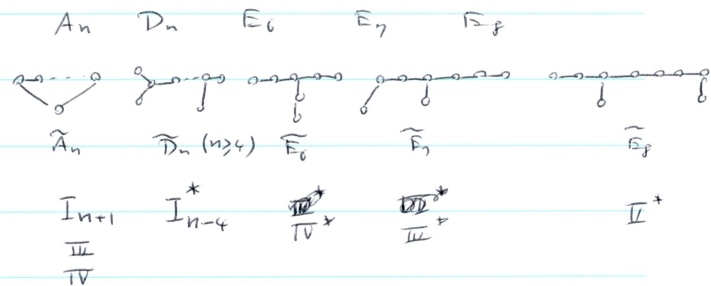 An Dn E6 E7 E8
Ãn D̃n (n≥4) Ẽ6 Ẽ7 Ẽ8
In+1 I*n-4 IV* III* II*
III
IV